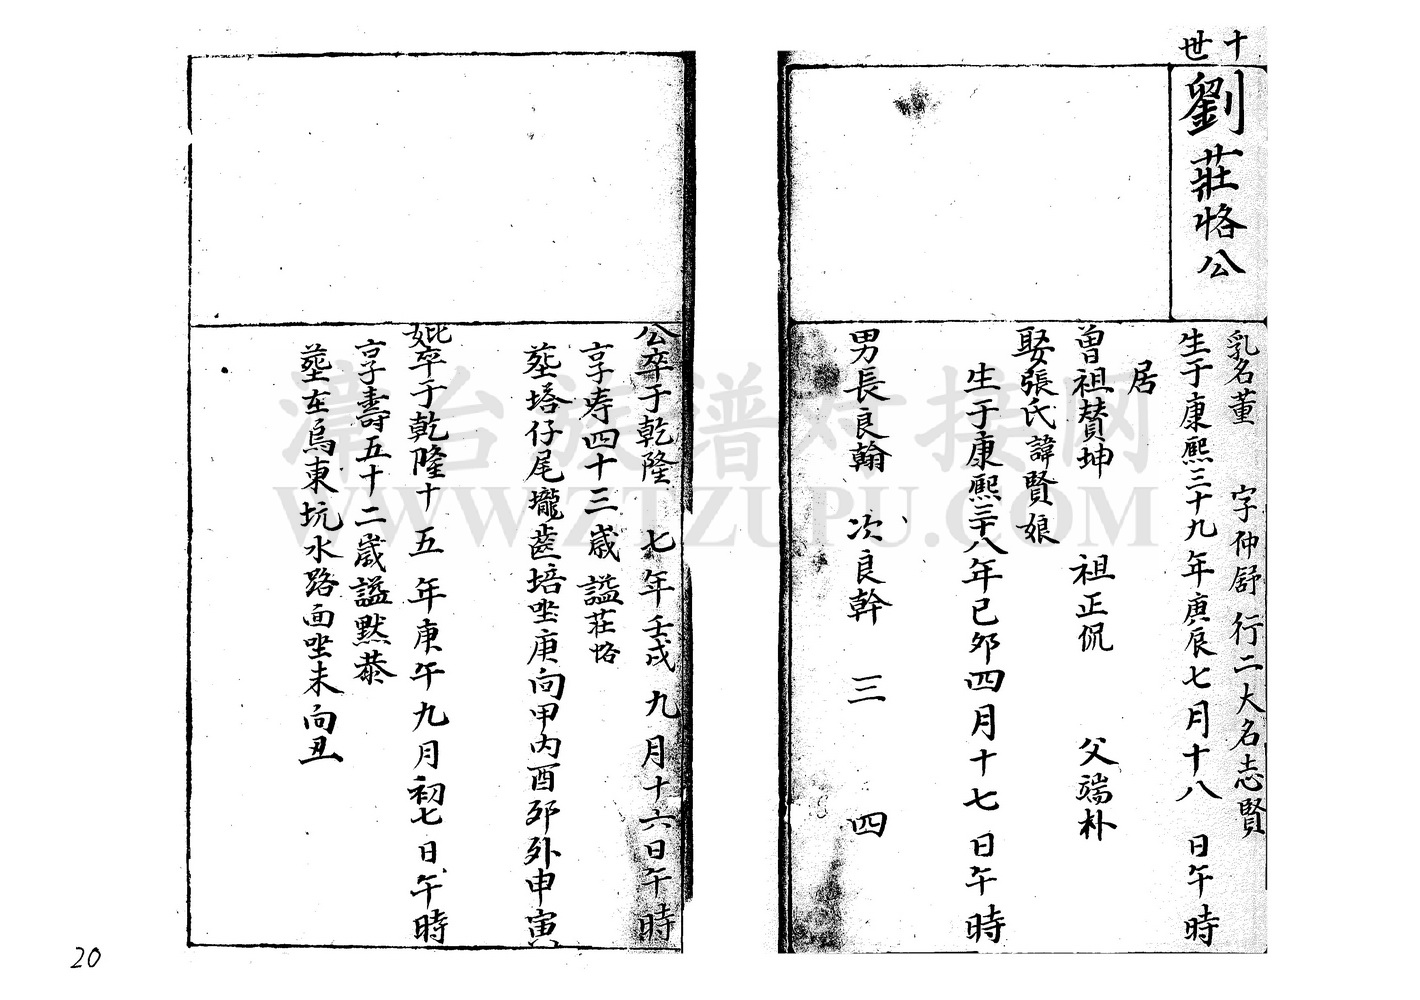 十世
劉莊恪公
乳名董 字仲舒 行二 大名志賢
生于康熙三十九年庚辰七月十八 日午時
居
曽祖賛坤 祖正侃 父端朴
娶張氏諱賢娘
生于康熙三十八年已夘四月十七日午時
男長良翰 次良幹 三 四
公卒于乾隆 七年壬戌九月十六日午時
享寿四十三歲謚莊恪
塟塔仔尾壠齒培坐庚向甲内酉夘外申寅
妣卒于乾隆十五年庚午九月初七日午時
享壽五十二歲謚黙恭
塟在烏東坑水路面坐未向丑
潇台族譜对接网
WWW.ZTZUPU.COM
20